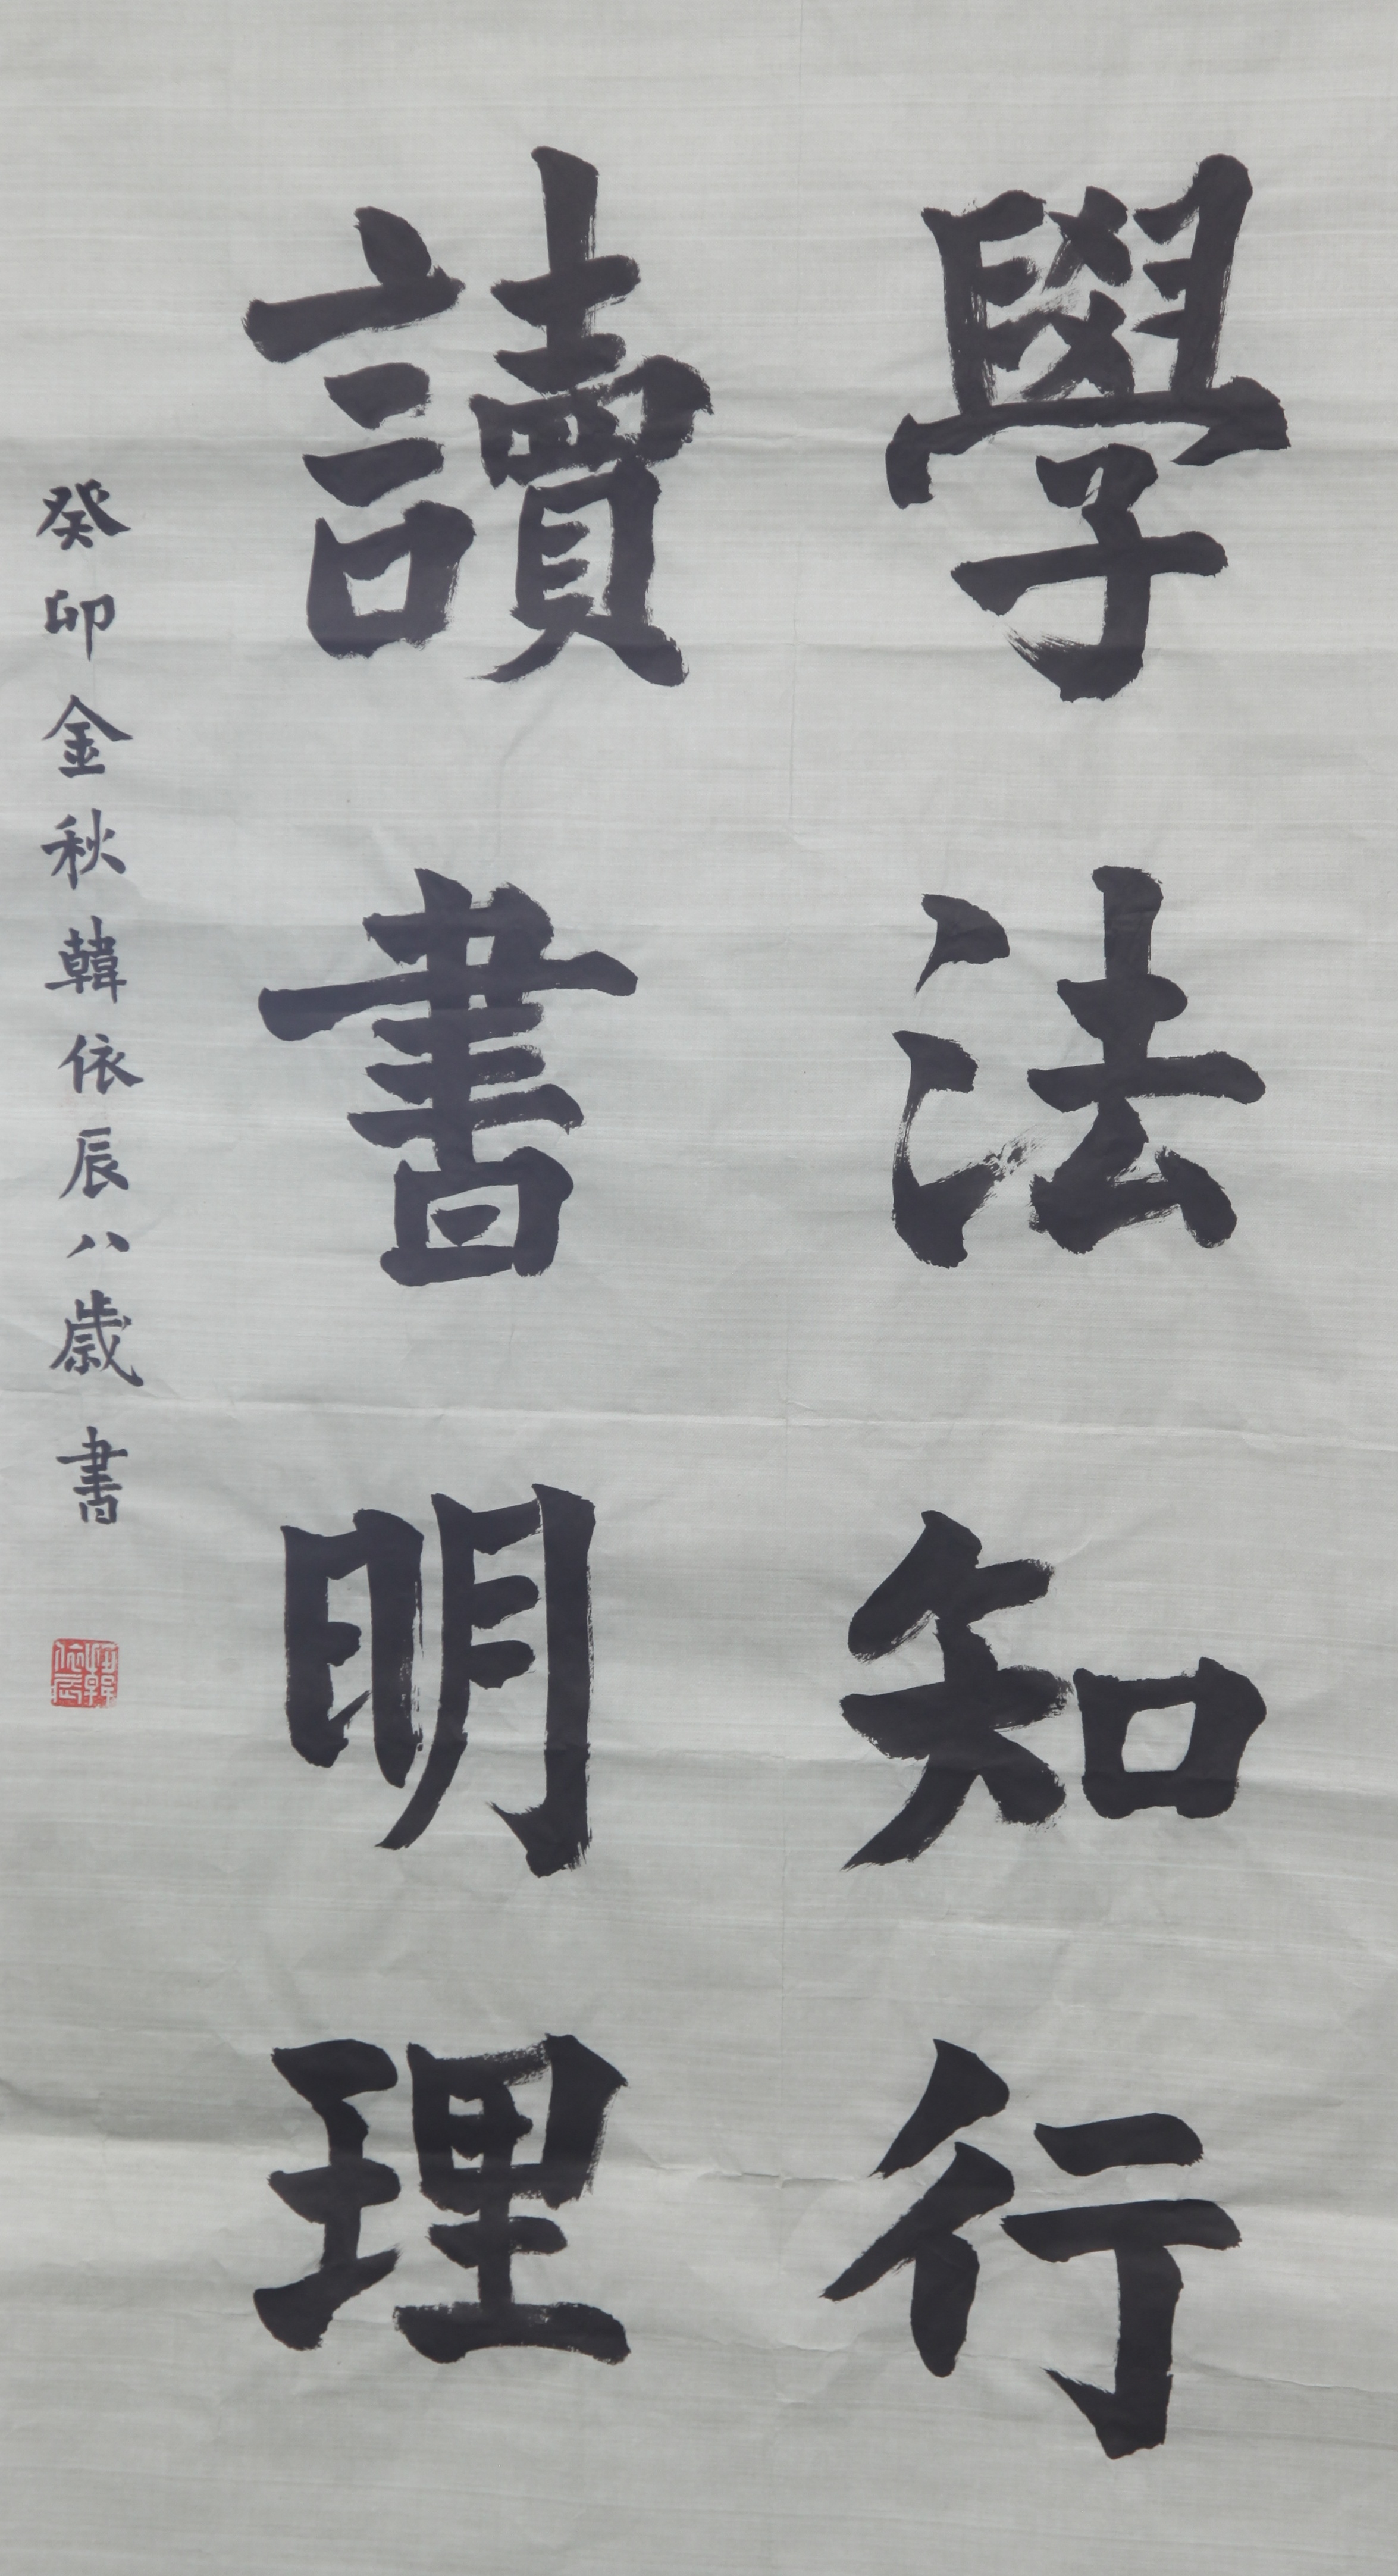 學法知行
讀書明理
癸卯金秋韓依辰八歲書